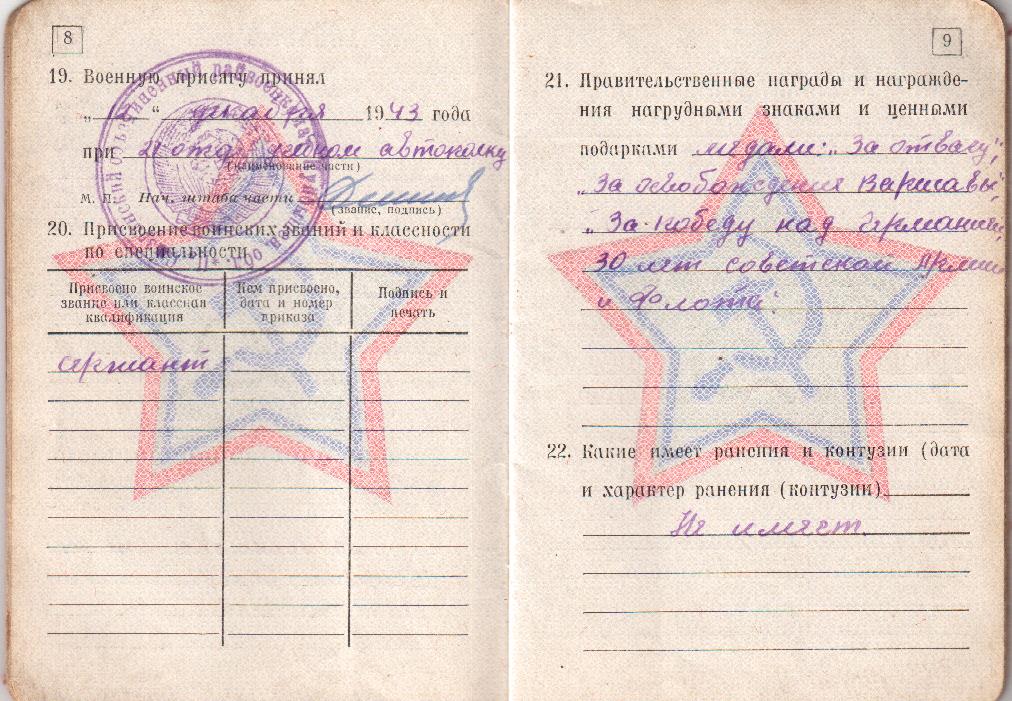 8
19. Военную присягу принял
„12“ декабря 1943 года
при отдельном автополку
(наименование части)
М. П. Нач. штаба части
(звание, подпись)
20. Присвоение воинских званий и классности
по специальности
Присвоено воинское
звание или классная
квалификация
Кем присвоено,
дата и номер
приказа
Подпись и
печать
сержант
9
21. Правительственные награды и награжде-
ния нагрудными знаками и ценными
подарками медали: „За отвагу“,
„За освобождение Варшавы“,
„За победу над Германией,
30 лет советской Армии
и Флота“
22. Какие имеет ранения и контузии (дата
и характер ранения (контузии)
Не имеет.